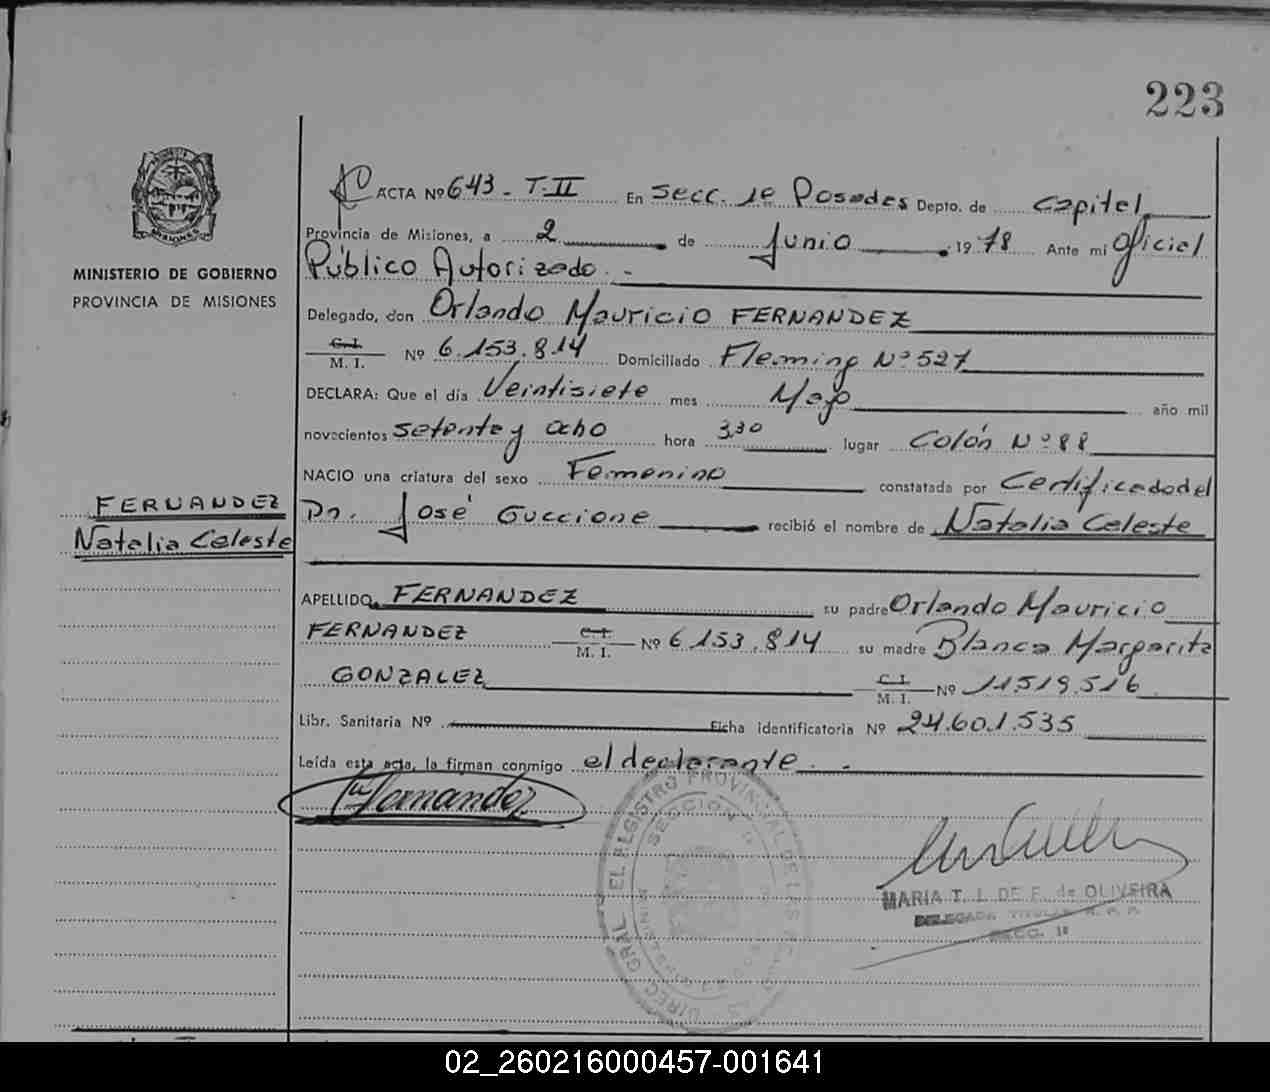 223
ACTA Nº 643 - T-II En Secc. 1ª Posadas Depto. de Capital
Provincia de Misiones, a 2 de Junio 1978 Ante mi Oficial
Público Autorizado.-
MINISTERIO DE GOBIERNO
PROVINCIA DE MISIONES
Delegado, don Orlando Mauricio FERNANDEZ
C.I.
M. I. Nº 6.153.814 Domiciliado Fleming Nº 527
DECLARA: Que el día Veintisiete mes Mayo año mil
novecientos setenta y ocho hora 3,30 lugar Colón Nº 88
NACIO una criatura del sexo Femenino constatada por Certificado del
FERNANDEZ
Natalia Celeste
Dr. José Guccione recibió el nombre de Natalia Celeste
APELLIDO FERNANDEZ su padre Orlando Mauricio
FERNANDEZ C.I. M. I. Nº 6.153.814 su madre Blanca Margarita
GONZALEZ C.I. M. I. Nº 11.519.516
Libr. Sanitaria Nº Ficha identificatoria Nº 24.601.535
Leída esta acta, la firman conmigo el declarante.-
Fernandez
MARIA T. I. DE F. de OLIVEIRA
DELEGADA TITULAR R. P. P.
SECC. 1ª
DIREC. GRAL. DEL REGISTRO PROVINCIAL DE LAS
SECCION 1ª
02_260216000457-001641